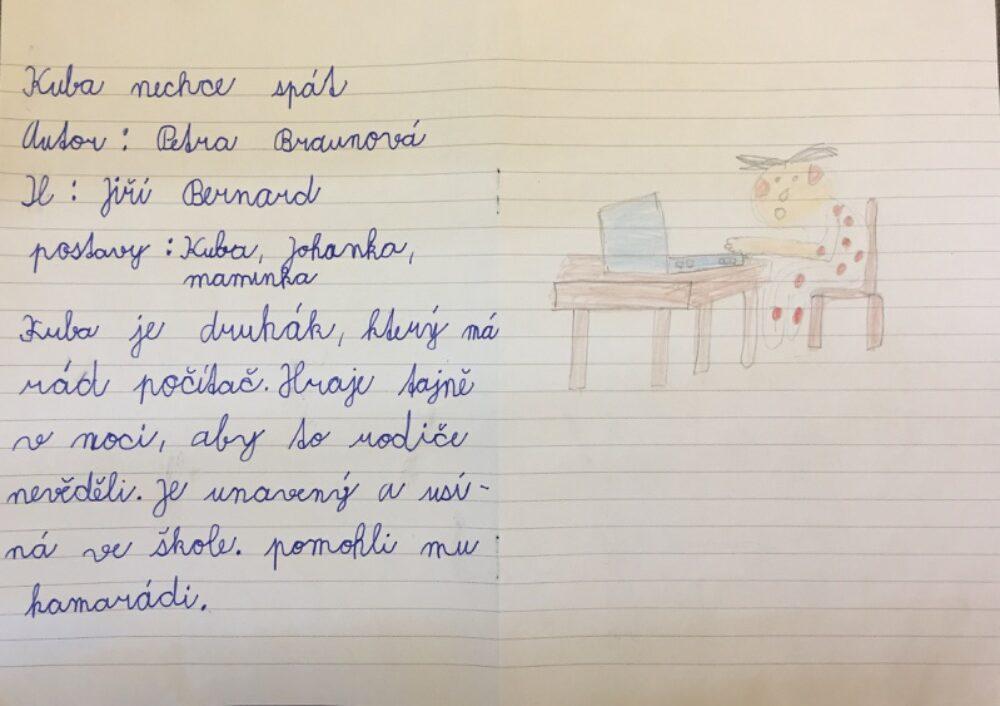 Kuba nechce spát
Autor: Petra Braunová
Il: Jiří Bernard
postavy: Kuba, Johanka,
maminka
Kuba je druhák, který má
rád počítač. Hraje tajně
v noci, aby to rodiče
nevěděli. Je unavený a usí-
ná ve škole. pomohli mu
kamarádi.